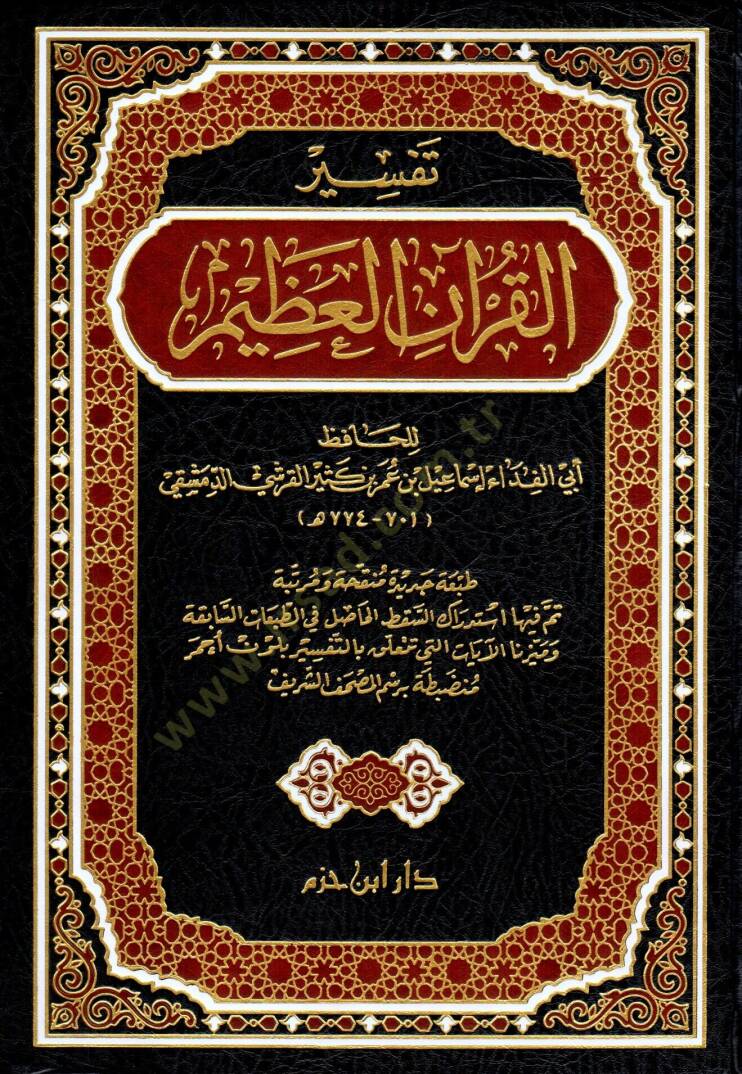 تَفسِير
القُرآنِ العَظِيمِ
لِلحَافِظ
أبي الفِدَاء إسماعيل بن عُمر بن كَثير القرشي الدِّمَشِقي
(٧٠١-٧٧٤ه)
طبعَة جَديدة مُنقحَة وَمُرتبة
تم فيها استدراك السقط الحاصل في الطبعات السابقة
وَميّزنا الآيات التي تتعلق بالتفسير بلون أحمر
مُنضبطة برسم المصحف الشريف
دار ابن حزم